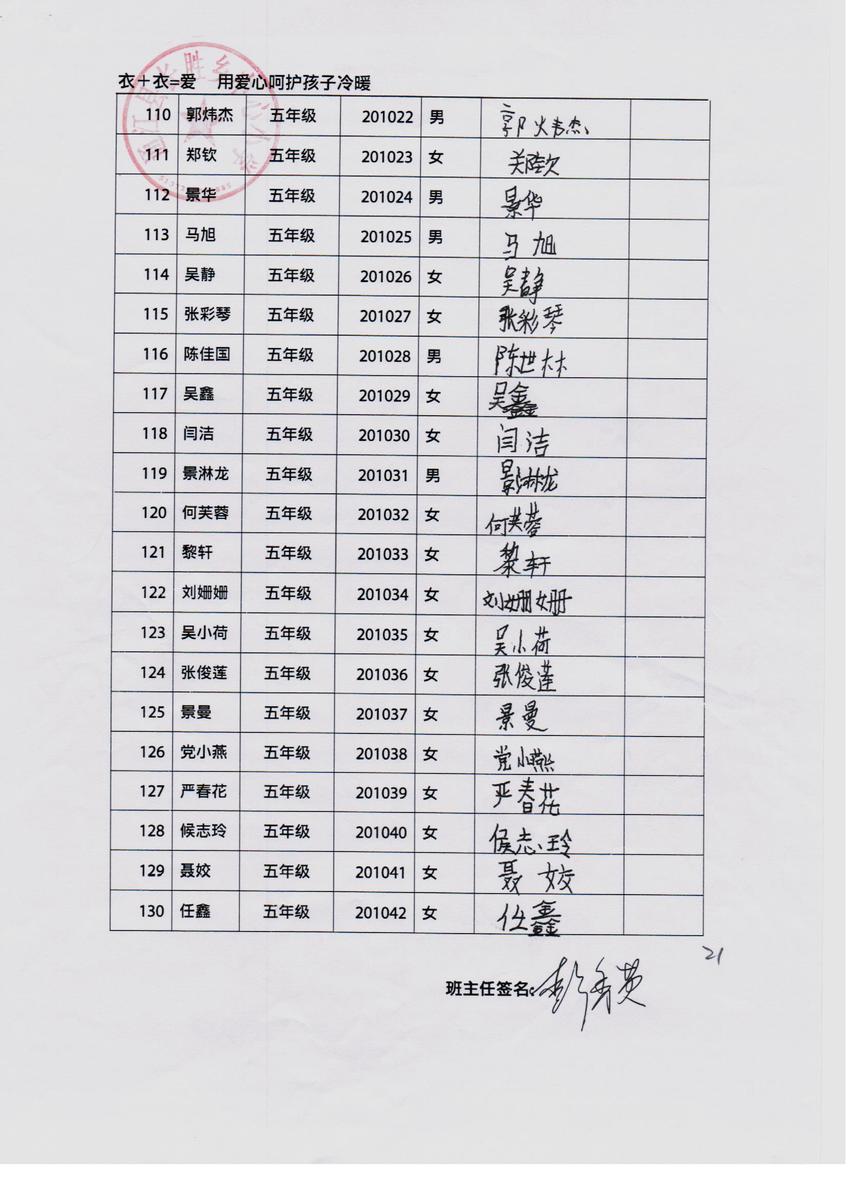 衣＋衣=爱 用爱心呵护孩子冷暖
110 郭炜杰 五年级 201022 男 郭炜杰
111 郑钦 五年级 201023 女
112 景华 五年级 201024 男 景华
113 马旭 五年级 201025 男 马旭
114 吴静 五年级 201026 女 吴静
115 张彩琴 五年级 201027 女 张彩琴
116 陈佳国 五年级 201028 男 陈世林
117 吴鑫 五年级 201029 女 吴鑫
118 闫洁 五年级 201030 女 闫洁
119 景淋龙 五年级 201031 男 景淋龙
120 何芙蓉 五年级 201032 女 何芙蓉
121 黎轩 五年级 201033 女 黎轩
122 刘姗姗 五年级 201034 女 刘姗姗
123 吴小荷 五年级 201035 女 吴小荷
124 张俊莲 五年级 201036 女 张俊莲
125 景曼 五年级 201037 女 景曼
126 党小燕 五年级 201038 女 党小燕
127 严春花 五年级 201039 女 严春花
128 候志玲 五年级 201040 女 侯志玲
129 聂姣 五年级 201041 女 聂姣
130 任鑫 五年级 201042 女 任鑫
21
班主任签名: